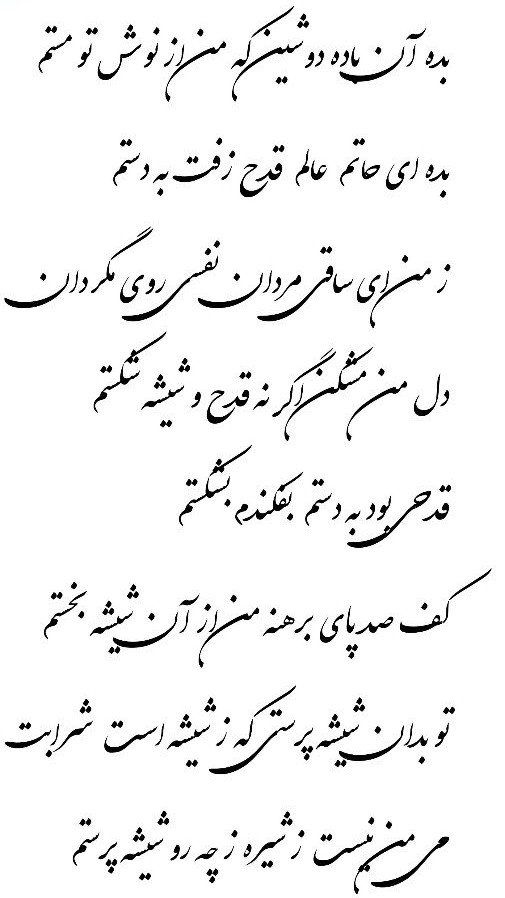 بده آن باده دوشین که من از نوش تو مستم
بده ای حاتم عالم قدح زفت به دستم
ز من ای ساقی مردان نفسی روی مگردان
دل من مشکن اگر نه قدح و شیشه شکستم
قدحی بود به دستم بفکندم بشکستم
کف صد پای برهنه من از آن شیشه بخستم
تو بدان شیشه پرستی که ز شیشه است شرابت
می من نیست ز شیره ز چه رو شیشه پرستم